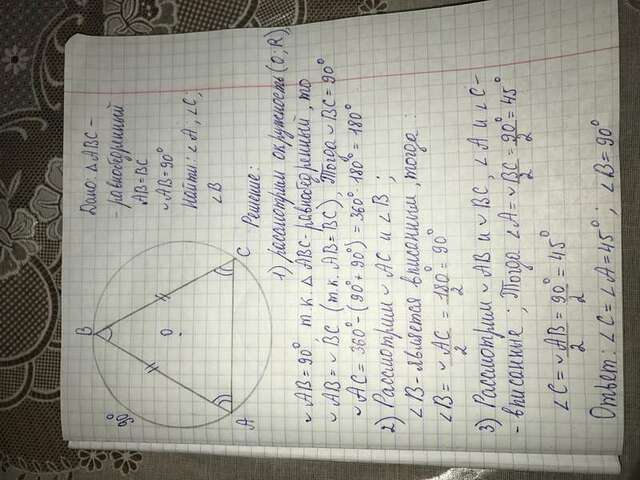 Дано: △ABC -
- равнобедренный
AB = BC
◡AB = 90°
Найти: ∠A; ∠C;
∠B
B
O
A
C
90°
Решение:
1) рассмотрим окружность (O; R),
◡AB = 90° т.к △ABC - равнобедренный, то
◡AB = ◡BC (т.к. AB = BC), Тогда ◡BC = 90°
◡AC = 360° - (90° + 90°) = 360° - 180° = 180°
2) Рассмотрим ◡AC и ∠B ;
∠B - является вписанным, тогда:
∠B = ◡AC/2 = 180°/2 = 90°
3) Рассмотрим ◡AB и ◡BC, ∠A и ∠C -
- вписанные ; Тогда ∠A = ◡BC/2 = 90°/2 = 45°
∠C = ◡AB/2 = 90°/2 = 45°
Ответ: ∠C = ∠A = 45° ; ∠B = 90°